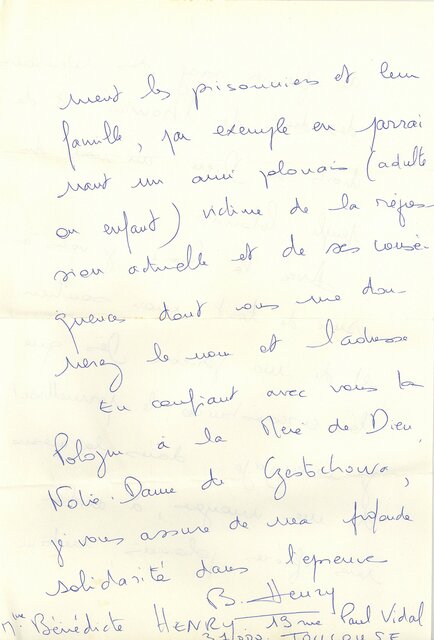 ment les prisonniers et leur
famille, par exemple en parrai
nant un ami polonais (adulte
ou enfant) victime de la répres-
sion actuelle et de ses consé-
quences dont vous me don-
nerez le nom et l'adresse
En confiant avec vous la
Pologne à la Mère de Dieu,
Notre-Dame de Czestochowa,
je vous assure de ma profonde
solidarité dans l'épreuve
B. Henry
Mme Bénédicte HENRY 19 rue Paul Vidal
31000 TOULOUSE